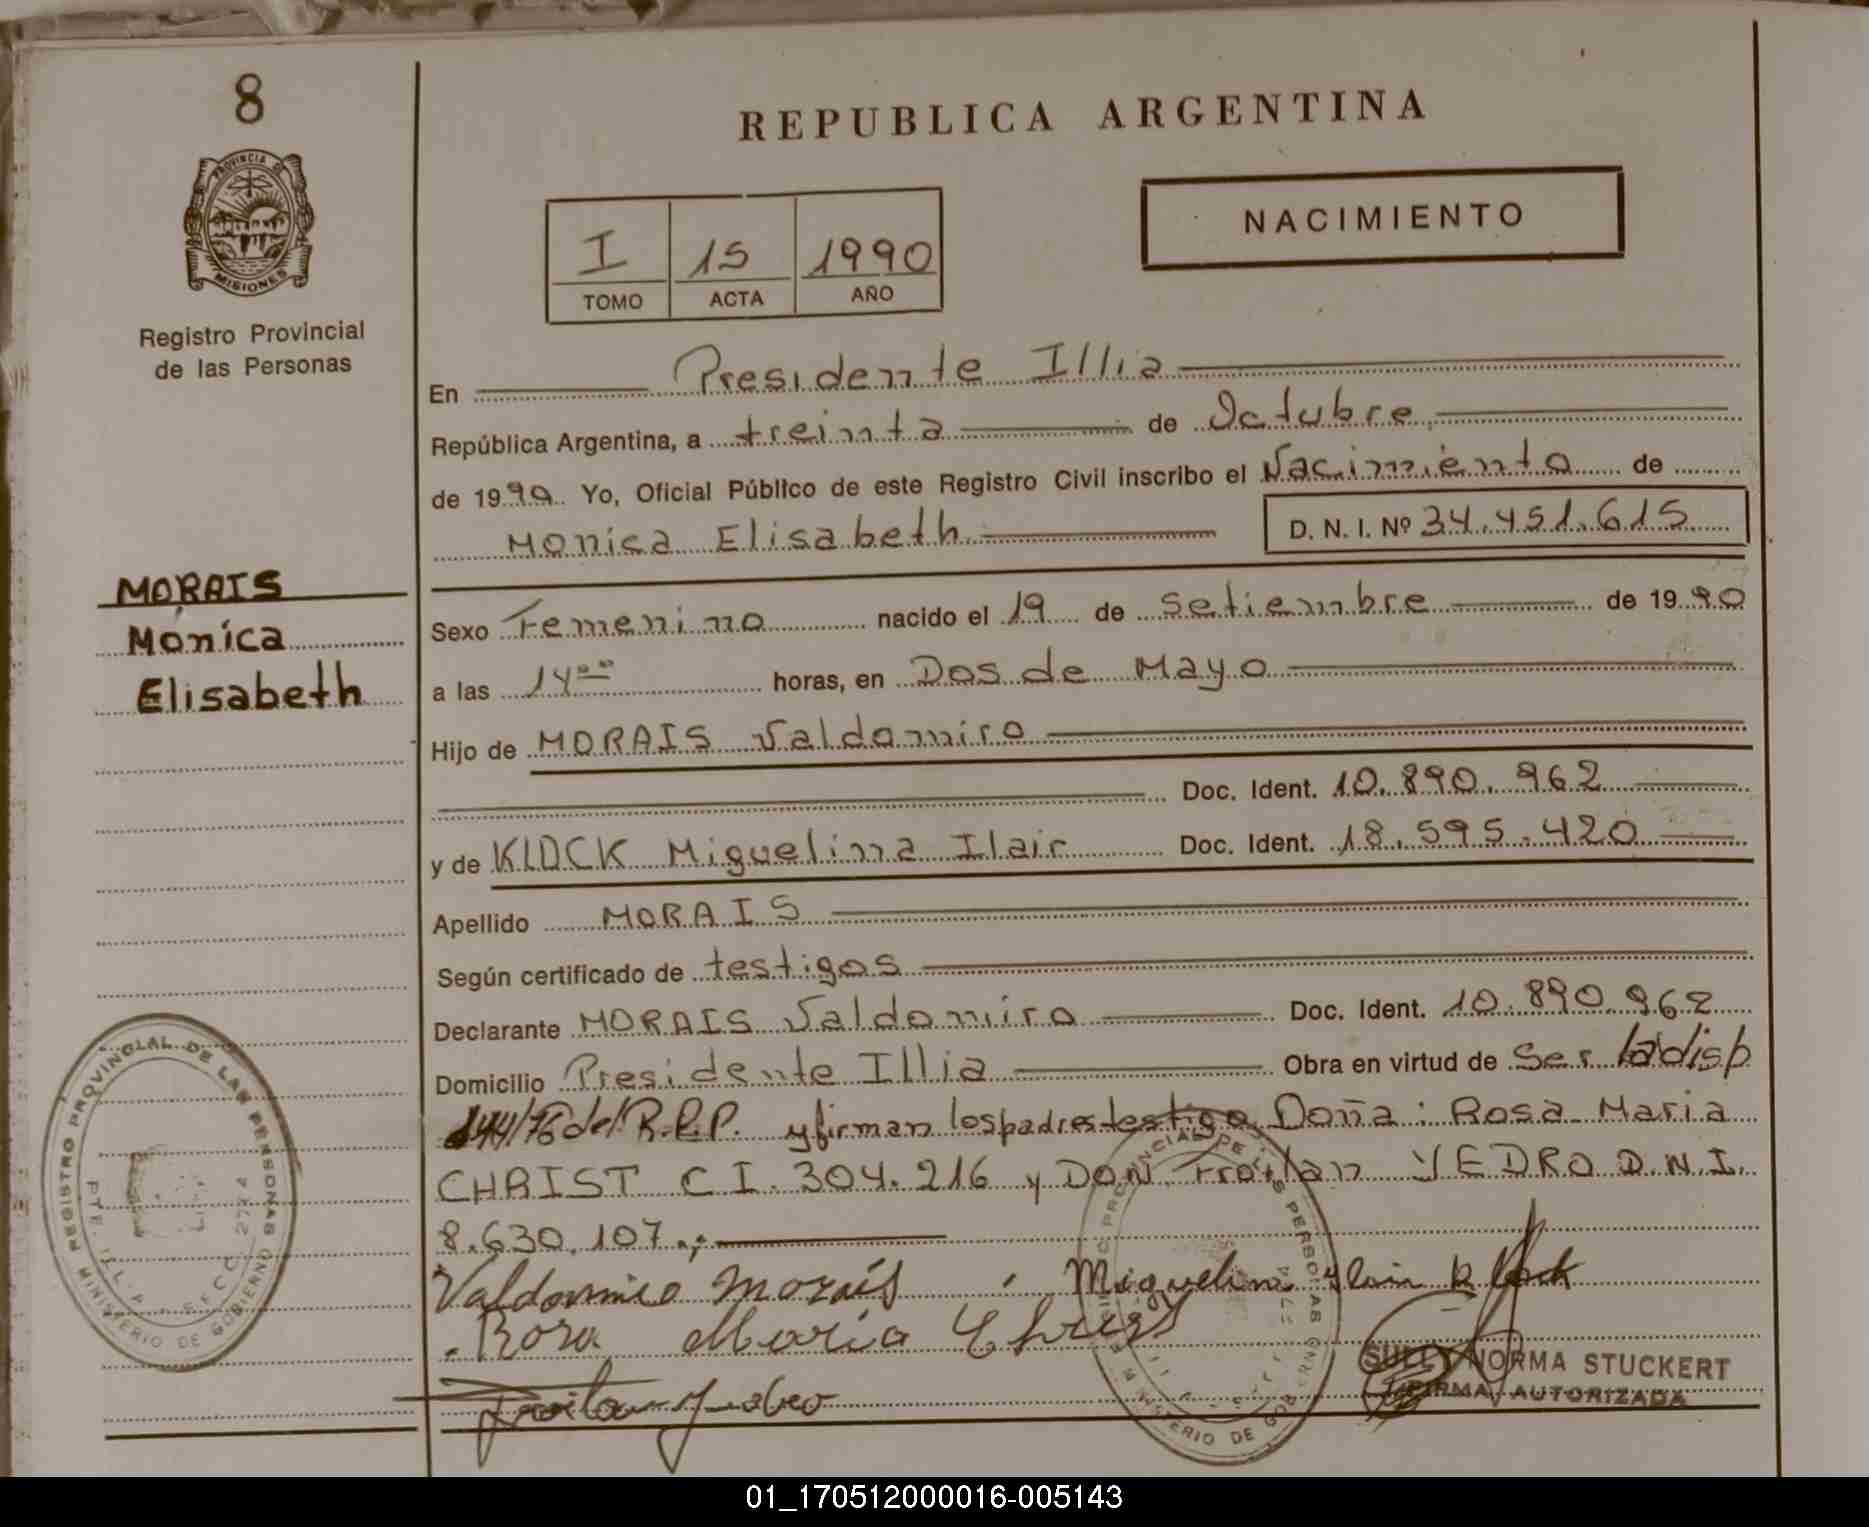 8
PROVINCIA DE
MISIONES
Registro Provincial
de las Personas
MORAIS
Monica
Elisabeth
REGISTRO PROVINCIAL DE LAS PERSONAS
MINISTERIO DE GOBIERNO
REPUBLICA ARGENTINA
NACIMIENTO
I 15 1990
TOMO ACTA AÑO
En Presidente Illia
República Argentina, a treinta de Octubre
de 1990 Yo, Oficial Público de este Registro Civil inscribo el Nacimiento de
Monica Elisabeth D. N. I. Nº 34.451.615
Sexo Femenino nacido el 19 de Setiembre de 1990
a las 14ºº horas, en Dos de Mayo
Hijo de MORAIS Valdomiro
Doc. Ident. 10.890.962
y de KLOCK Miguelina Ilair Doc. Ident. 18.595.420
Apellido MORAIS
Según certificado de testigos
Declarante MORAIS Valdomiro Doc. Ident. 10.890.962
Domicilio Presidente Illia Obra en virtud de Ser la disp
144/76 del R.P.P. y firman los padres testigo Doña: Rosa Maria
CHRIST C I. 304.216 y DON Froilan YEDRO D.N.I.
8.630.107.;
Valdomiro Morais Miguelina Ilair Klock
Rosa Maria Christ
SULLY NORMA STUCKERT
FIRMA AUTORIZADA
01_170512000016-005143